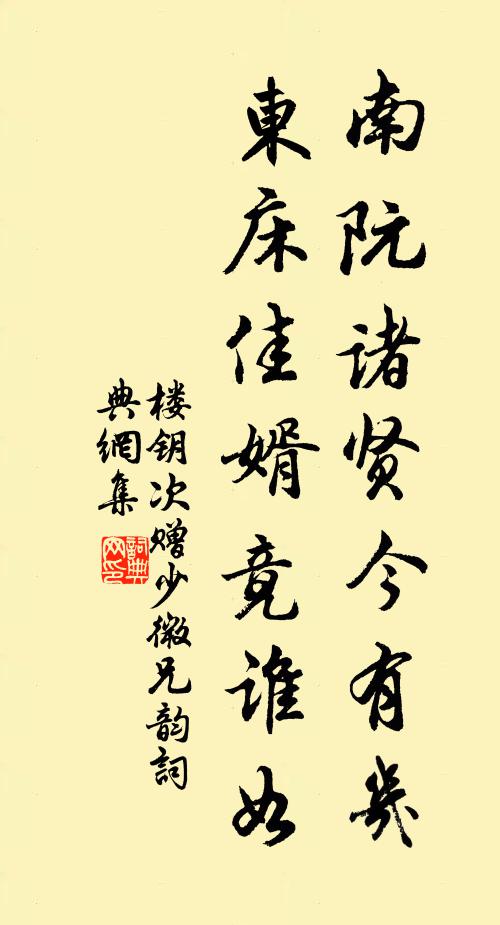 南阮诸贤今有幾
東床佳婿竟谁如
楼钥次赠少微兄韵詞
典網集
詞典网印